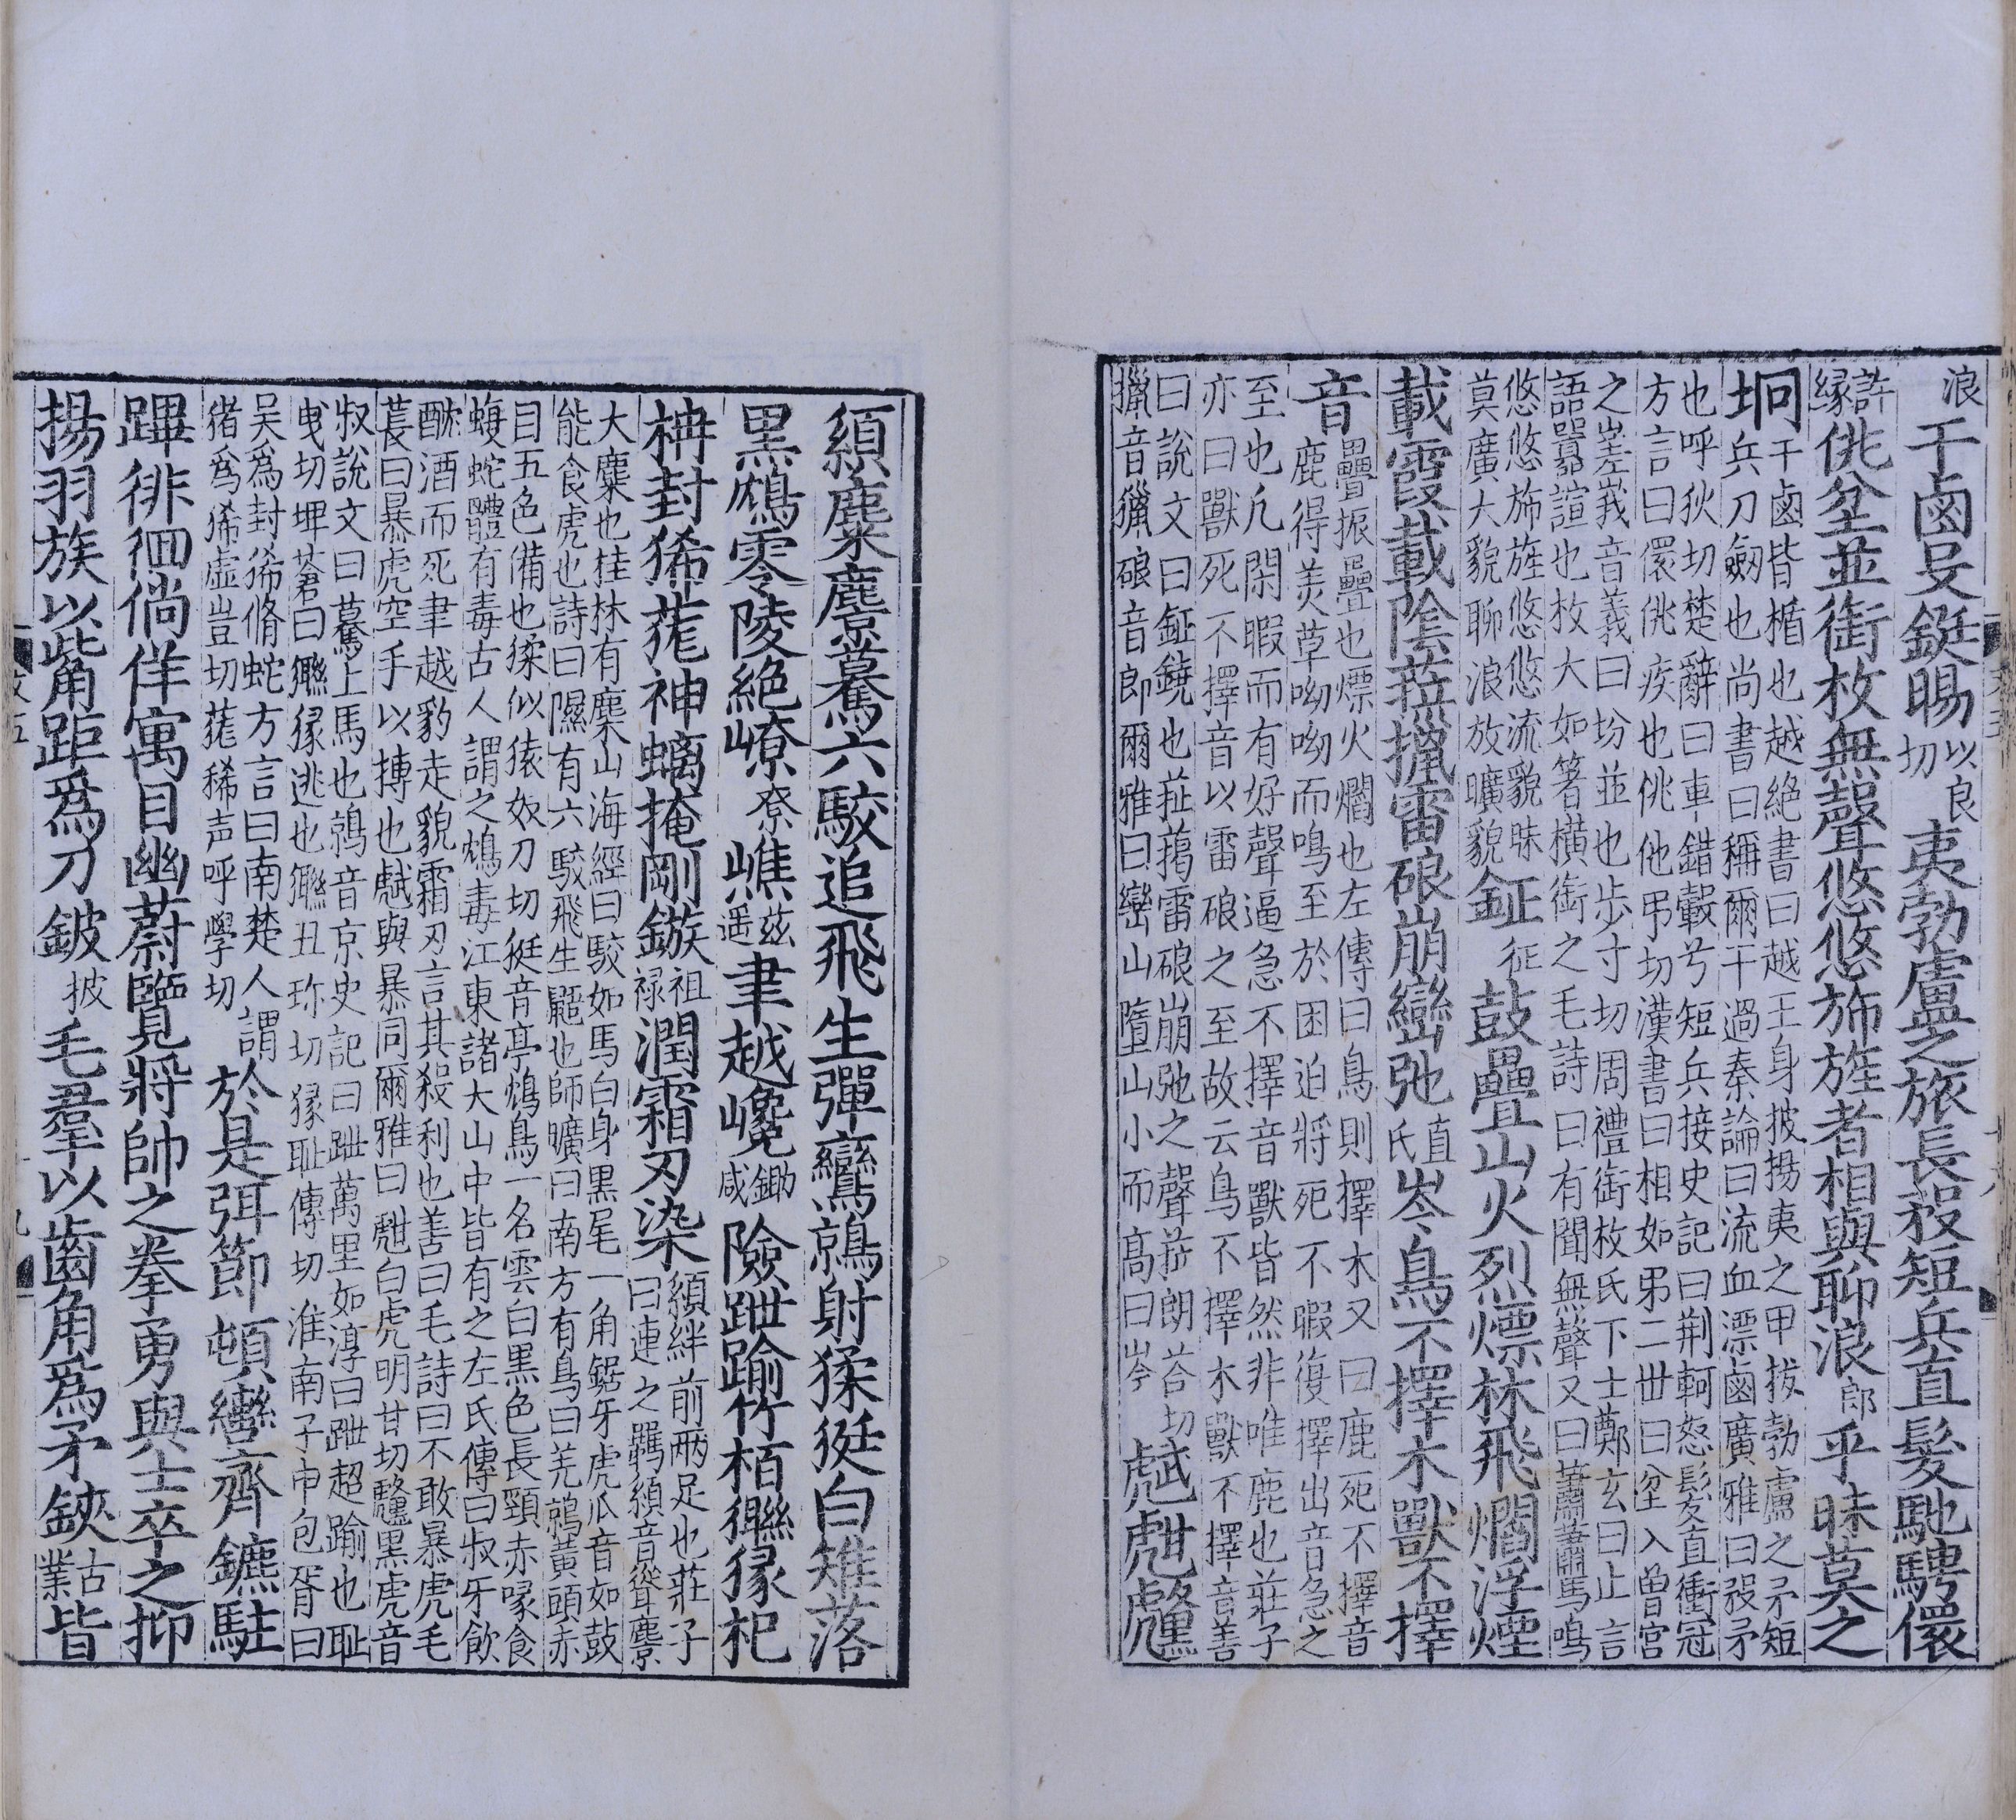 浪干鹵殳鋋暘以良切夷勃盧之旅長殺短兵直髮馳騁儇
許縁佻坌並銜枚無聲悠悠斾旌者相與聊浪郎乎昧莫之
坰干鹵皆楯也越絶書曰越王身披揚夷之甲拔勃盧之矛短
兵刀劒也尚書曰稱爾干過秦論曰流血漂鹵廣雅曰殺矛
也呼狄切楚辭曰車錯轂兮短兵接史記曰荆軻怒髮直衝冠
方言曰儇佻疾也佻他弔切漢書曰相如弔二世曰坌入曽宮
之嵳峩音義曰坌並也步寸切周禮銜枚氏下士鄭玄曰止言
語嚻諠也枚大如箸横銜之毛詩曰有聞無聲又曰蕭蕭馬鳴
悠悠斾旌悠悠流貌昧
莫廣大貌聊浪放曠貌
鉦征鼓疊山火烈熛林飛爓浮煙
載霞載陰菈擸雷硠崩巒弛直氏岑鳥不擇木獸不擇
音疊振疊也熛火爓也左傳曰鳥則擇木又曰鹿死不擇音
鹿得美草呦呦而鳴至於困迫將死不暇復擇出音急之
至也凡閑暇而有好聲逼急不擇音獸皆然非唯鹿也莊子
亦曰獸死不擇音以雷硠之至故云鳥不擇木獸不擇音善
曰說文曰鉦鐃也菈擸雷硠崩弛之聲菈朗荅切
擸音獵硠音郎爾雅曰巒山墮山小而髙曰岑
虣甝虪
䋶麋麖驀六駮追飛生彈鸞鶁射猱挺白雉落
黒鴆零陵絶嶛嶚嶕兹遥聿越巉鋤咸險跇踰竹栢獬猭杞
柟封狶蓷神螭掩剛鏃祖禄潤霜刃染䋶絆前兩足也莊子
曰連之羈䋶音聳麖
大麋也桂林有麋山海經曰駮如馬白身黒尾一角鋸牙虎爪音如鼓
能食虎也詩曰隰有六駮飛生鼯也師曠曰南方有鳥曰羌鶁黃頭赤
目五色備也猱似猿奴刀切挺音亭鴆鳥一名雲白黒色長頸赤喙食
蝮蛇體有毒古人謂之鴆毒江東諸大山中皆有之左氏傳曰叔牙飲
酖酒而死聿越豹走貌霜刃言其殺利也善曰毛詩曰不敢暴虎毛
萇曰暴虎空手以搏也虣與暴同爾雅曰甝白虎明甘切虪黒虎音
叔說文曰驀上馬也鶁音京史記曰跇萬里如淳曰跇超踰也跇
曵切埤蒼曰獬猭逃也獬丑珎切猭耻傳切淮南子申包胥曰
吴為封狶脩蛇方言曰南楚人謂
猪為狶虚豈切蓷稀声呼學切
於是弭節頓轡齊鑣駐
蹕徘徊倘佯寓目幽蔚覽將帥之拳勇與士卒之抑
揚羽族以觜角距為刀鈹披毛羣以齒角為矛鋏古業皆